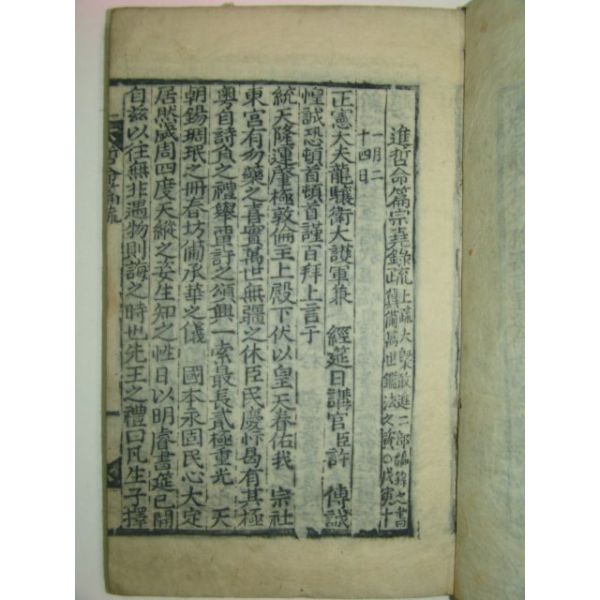 進哲命篇宗堯錄疏 上疏大槩敢進二部編錄之書
冀備萬世鑑法之資○戊寅十
一月二
十四日
正憲大夫龍驤衛大護軍兼 經筵日講官臣許 傳誠
惶誠恐頓首頓首謹百拜上言于
統天隆運肇極敦倫主上殿下伏以皇天眷佑我 宗社
東宮有勿藥之喜實萬世無疆之休臣民慶忭曷有其極
粤自詩負之禮舉重之頌興一索最長貳極重光 天
朝錫琱珉之冊春坊備承華之儀 國本永固民心大定
居然歲周四度天縱之姿生知之性日以明睿書筵已開
自玆以往無非遇物則誨之時也先王之禮曰凡生子擇